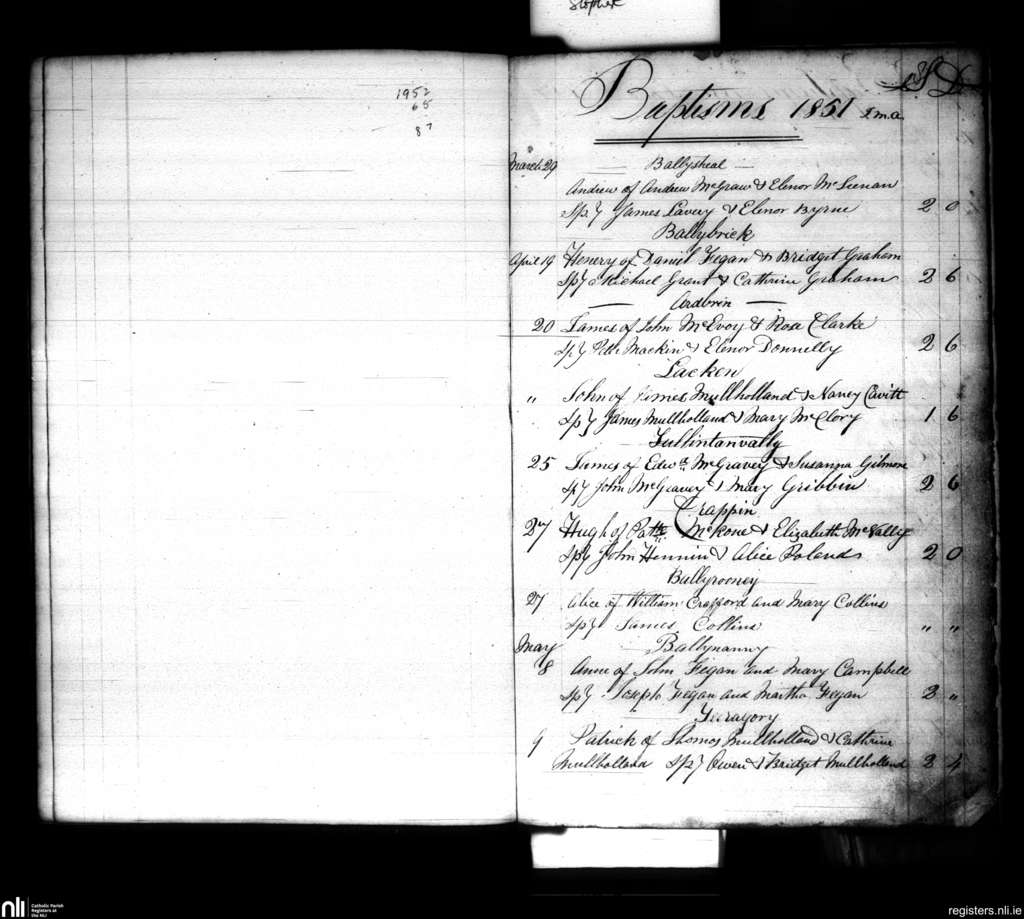 Stophet
1952
65
87
Baptisms 1851 I.m.a. S D
March 29 Ballysheal
Andrew of Andrew McGraw & Elenor McLienan
Sps James Lavery & Elenor Byrne 2 0
Ballybrick
April 19 Henery of Daniel Fegan & Bridget Graham
Sps Michael Grant & Cathrine Graham 2 6
Ardbrin
20 James of John McEvoy & Rosa Clarke
Sps Mackin & Elenor Donnelly 2 6
Lacken
" John of James Mullholland & Nancy Cavitt
Sps James Mullholland & Mary McClory 1 6
Tullintanvally
25 James of Edwd McGravey & Susanna Gilmore
Sps John McGravey & Mary Gribbin 2 6
Crappin
27 Hugh of Patk McKone & Elizabeth McNally
Sps John Hennin & Alice Polands 2 0
Ballyrooney
27 Alice of William Crafford and Mary Collins
Sps James Collins " "
May Ballynanny
8 Anne of John Fegan and Mary Campbell
Sps Joseph Fegan and Martha Fegan 2 "
9 Patrick of Thomas Mullholland & Cathrine
Mullholland Sps Owen & Bridget Mullholland 2 4
nli
Catholic Parish
Registers at
the NLI
registers.nli.ie